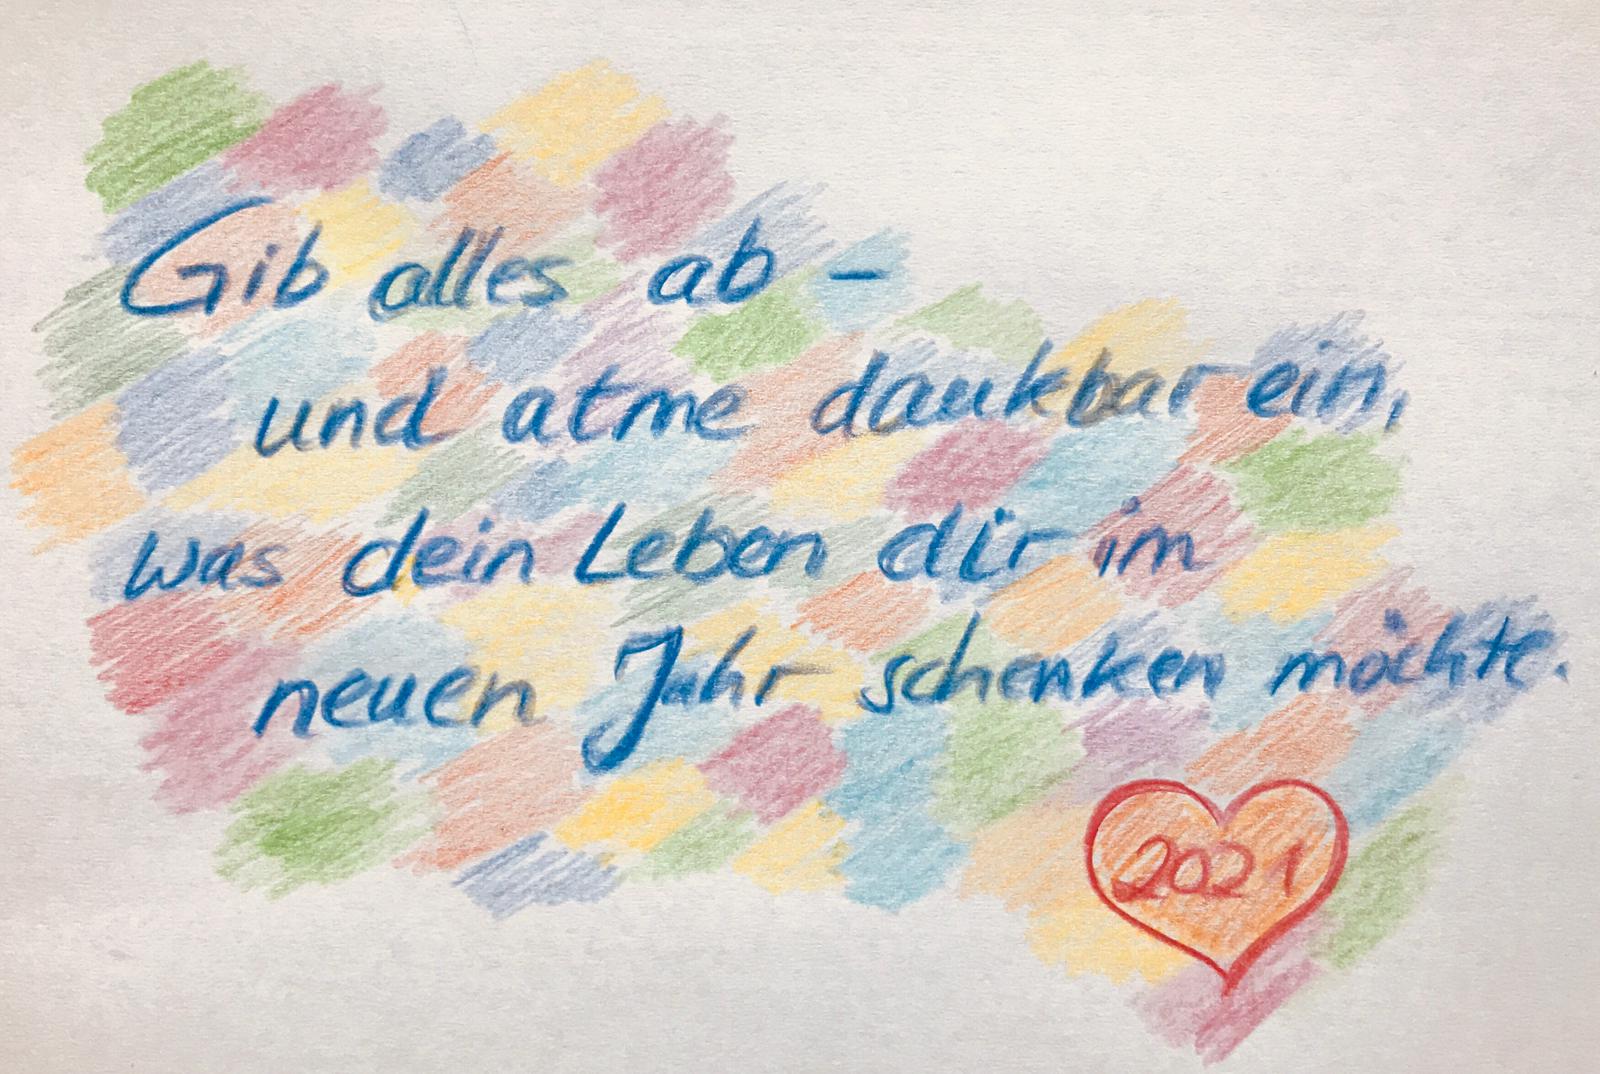 Gib alles ab –
und atme dankbar ein,
was dein Leben dir im
neuen Jahr schenken möchte.
2021